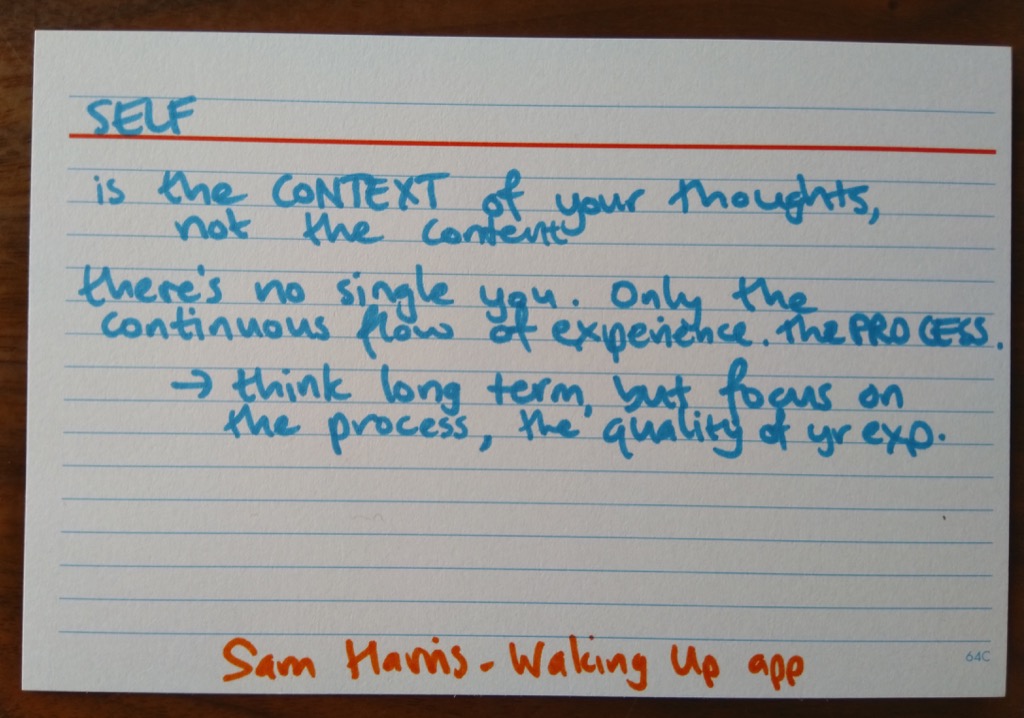 SELF
is the CONTEXT of your thoughts,
not the content
there's no single you. Only the
continuous flow of experience. The PROCESS.
→ think long term, but focus on
the process, the quality of yr exp.
Sam Harris - Waking Up app
64C